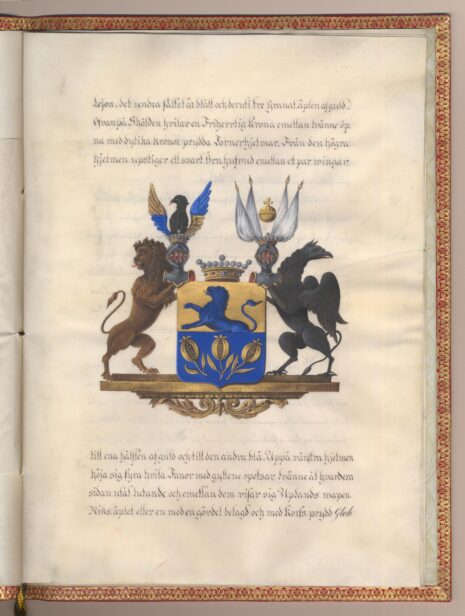 Lejon, det undra fältet är blått och deruti tre Granat äplen af guld.
Ofvanpå Skölden hvilar en Friherrlig Krona emellan tvänne öp
na med dylika kronor prydda Tornerhjelmar. Från den högra
hjelmen upstiger ett svart Örn hufvud emellan ett par wingar
till ena hälften af guld och till den andra blå. Uppå vänstra hjelmen
höja sig fyra hvita Fanor med gyllene spetsar, tvänne åt hvardera
sidan utåt lutande och emellan dem visar sig Uplands wapen.
Riks äplet eller en med en gördel belagd och med Korfs prydd Glob